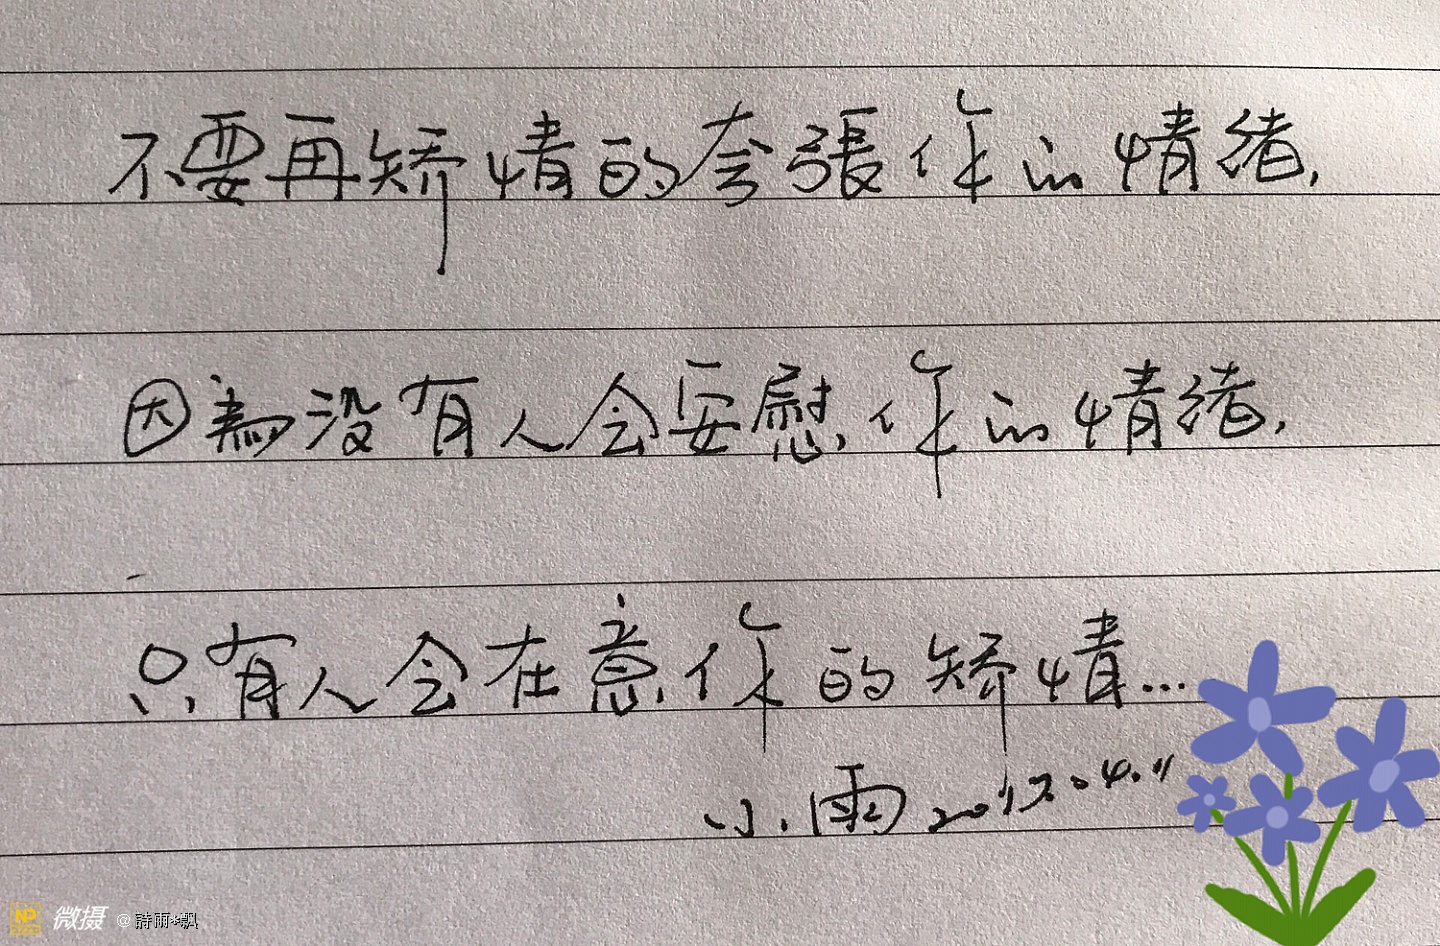 不要再矫情的夸張你的情绪,
因為没有人会安慰你的情绪,
只有人会在意你的矫情...
小雨 2017.04.11
微摄 @詩雨*飄